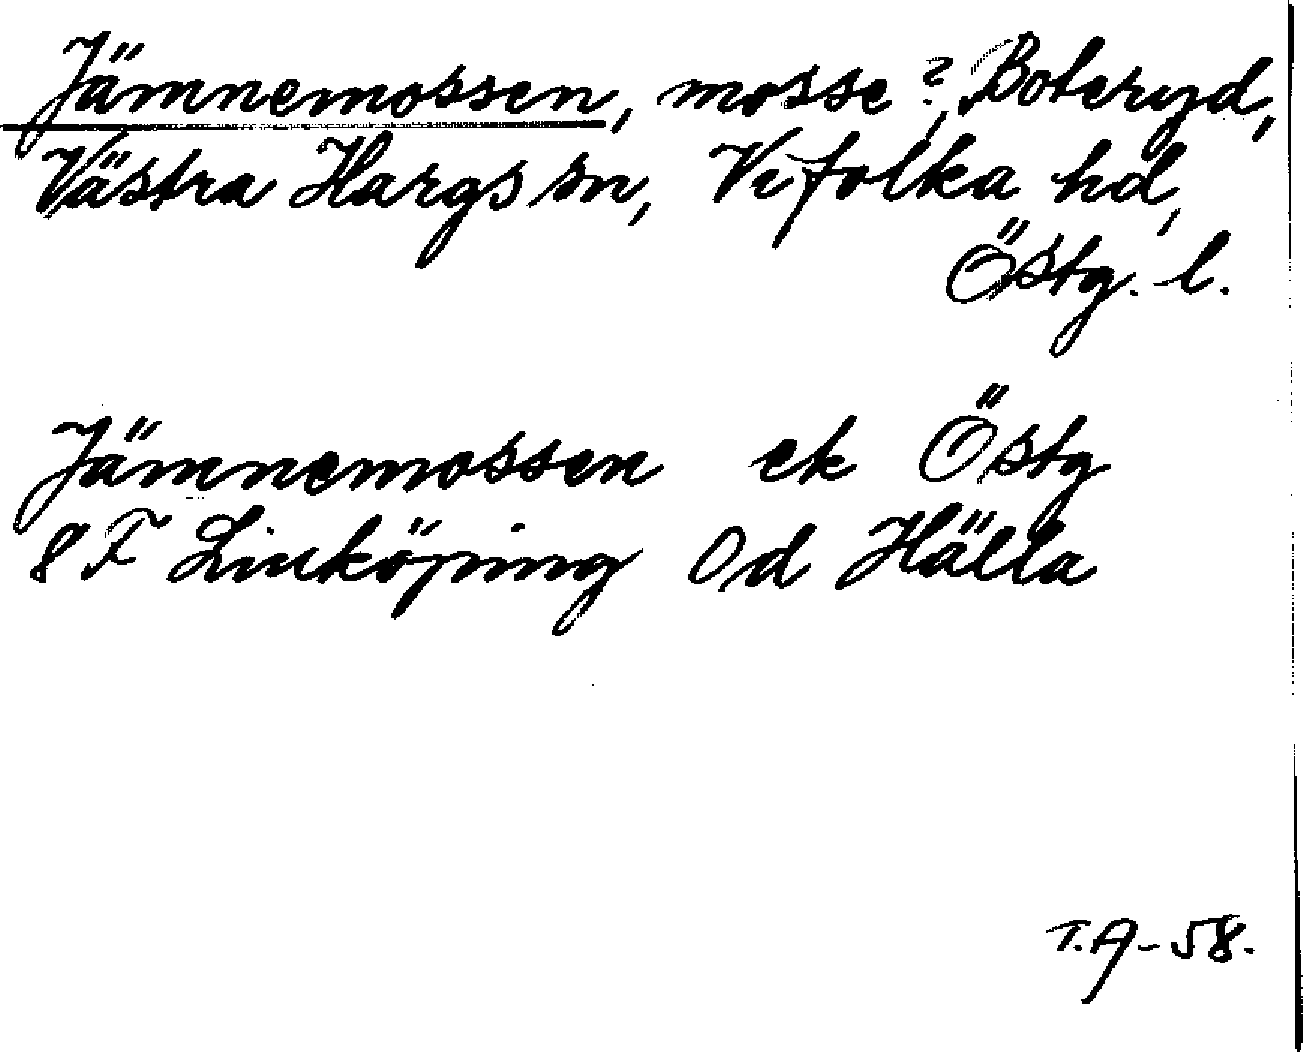 Jämnemossen, mosse?, Boteryd,
Västra Hargs sn, Vifolka hd,
Östg. l.
Jämnemossen ek Östg
8 F Linköping 0 d Hälla
T.A-58.